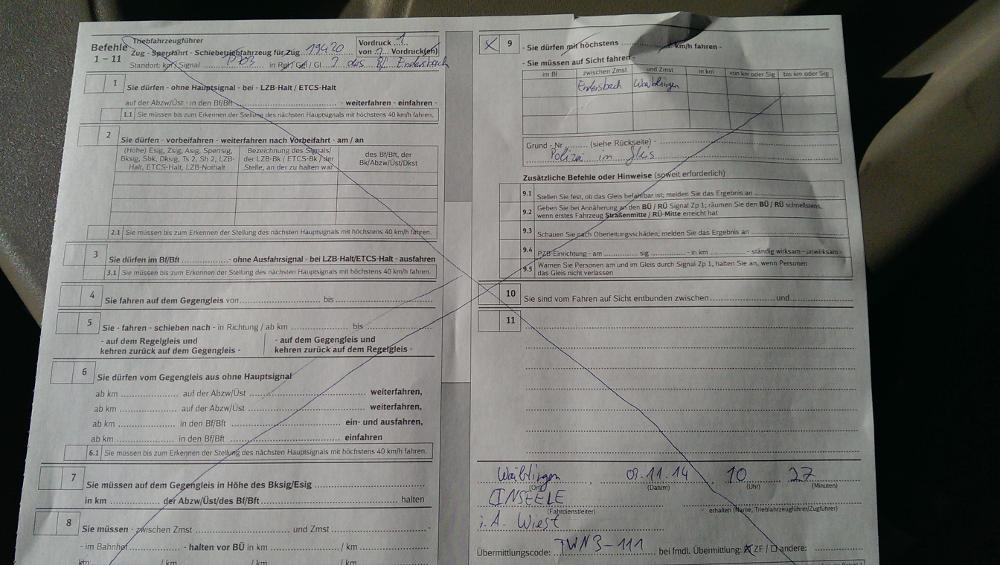 Triebfahrzeugführer
Befehle Zug - Sperrfahrt - Schiebetriebfahrzeug für Zug 19420
Vordruck 1
von 1 Vordruck(en)
1 – 11
Standort: km / Signal P703 in Bf / Gleis Bf Endersbach
1
Sie dürfen - ohne Hauptsignal - bei - LZB-Halt / ETCS-Halt
auf der Abzw/Üst - in den Bf/Bft - weiterfahren - einfahren -
1.1 Sie müssen bis zum Erkennen der Stellung des nächsten Hauptsignals mit höchstens 40 km/h fahren.
2
Sie dürfen - vorbeifahren - weiterfahren nach Vorbeifahrt - am / an
(Höhe) Esig, Zsig, Asig, Sperrsig, Bksig, Sbk, Dksig, Ts 2, Sh 2, LZB-Halt, ETCS-Halt, LZB-Nothalt
Bezeichnung des Signals/ der LZB-Bk / ETCS-Bk / der Stelle, an der zu halten war
des Bf/Bft, der Bk/Abzw/Üst/Dkst
2.1 Sie müssen bis zum Erkennen der Stellung des nächsten Hauptsignals mit höchstens 40 km/h fahren.
3
Sie dürfen im Bf/Bft - ohne Ausfahrsignal - bei LZB-Halt/ETCS-Halt - ausfahren
3.1 Sie müssen bis zum Erkennen der Stellung des nächsten Hauptsignals mit höchstens 40 km/h fahren.
4
Sie fahren auf dem Gegengleis von bis
5
Sie - fahren - schieben nach - in Richtung / ab km bis
- auf dem Regelgleis und kehren zurück auf dem Gegengleis -
- auf dem Gegengleis und kehren zurück auf dem Regelgleis -
6
Sie dürfen vom Gegengleis aus ohne Hauptsignal
ab km auf der Abzw/Üst weiterfahren,
ab km auf der Abzw/Üst weiterfahren,
ab km in den Bf/Bft ein- und ausfahren,
ab km in den Bf/Bft einfahren
6.1 Sie müssen bis zum Erkennen der Stellung des nächsten Hauptsignals mit höchstens 40 km/h fahren.
7
Sie müssen auf dem Gegengleis in Höhe des Bksig/Esig
in km der Abzw/Üst/des Bf/Bft halten
8
Sie müssen - zwischen Zmst und Zmst -
- im Bahnhof - halten vor BÜ in km / km
km / km / km / km
X 9
- Sie dürfen mit höchstens km/h fahren -
- Sie müssen auf Sicht fahren -
im Bf zwischen Zmst und Zmst in km von km oder Sig bis km oder Sig
Endersbach Waiblingen
Grund - Nr (siehe Rückseite) -
Polizei im Gleis
Zusätzliche Befehle oder Hinweise (soweit erforderlich)
9.1 Stellen Sie fest, ob das Gleis befahrbar ist; melden Sie das Ergebnis an
9.2 Geben Sie bei Annäherung an den BÜ / RÜ Signal Zp 1; räumen Sie den BÜ / RÜ schnellstens, wenn erstes Fahrzeug Straßenmitte / RÜ-Mitte erreicht hat
9.3 Schauen Sie nach Oberleitungsschäden; melden Sie das Ergebnis an
9.4 PZB-Einrichtung - am sig - in km - ständig wirksam - unwirksam -
9.5 Warnen Sie Personen am und im Gleis durch Signal Zp 1, halten Sie an, wenn Personen das Gleis nicht verlassen
10
Sie sind vom Fahren auf Sicht entbunden zwischen und
11
Waiblingen, 09.11.14, 10 27
(Ort) (Datum) (Uhr) (Minuten)
CINSELE
(Fahrdienstleiter) erhalten (Name, Triebfahrzeugführer/Zugführer)
i. A. Wiest
Übermittlungscode: TWN3-111 bei fmdl. Übermittlung: X ZF / andere: